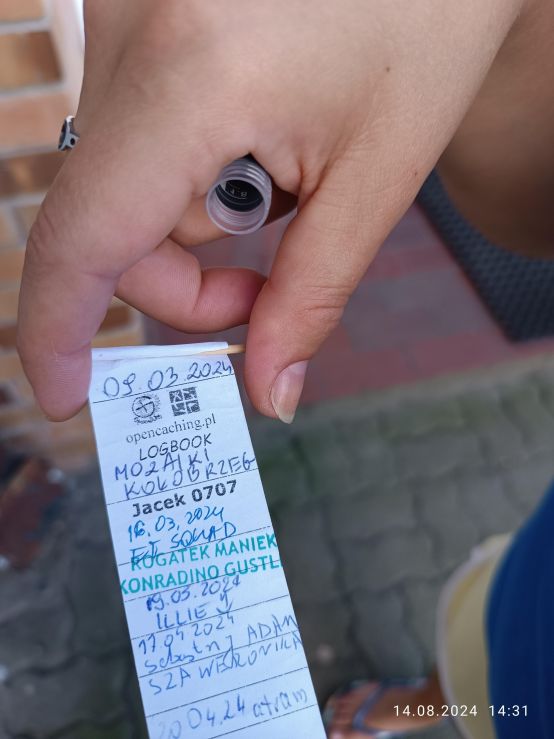 09.03.2024
opencaching.pl
LOGBOOK
MOZAIKI
KOŁOBRZEG
Jacek 0707
16.03.2024
SQUAD
ROGATEK MANIEK
KONRADINO GUSTL
19.03.2024
ILLIE
17.04 2024
ADAM
SZA WERONIKA
20 04.24 atram
14.08.2024 14:31